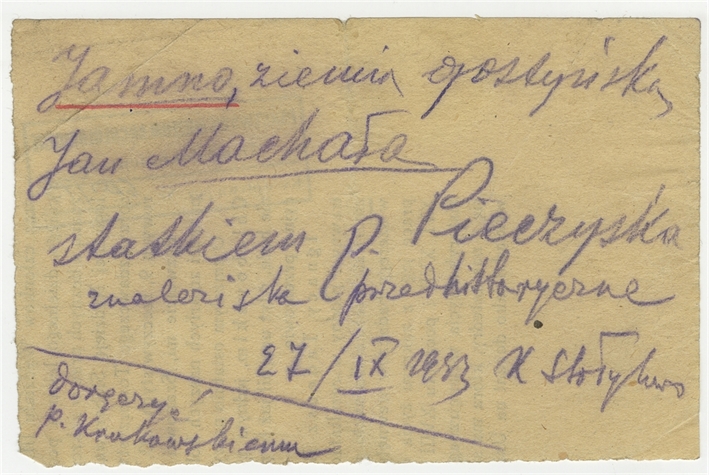 Jamno, ziemia gostyńska,
Jan Machała
statkiem p. Pieczyska
znaleziska przedhistoryczne
27/IX 1933 K Stołyhwo
doręczyć
p. Krukowskiemu